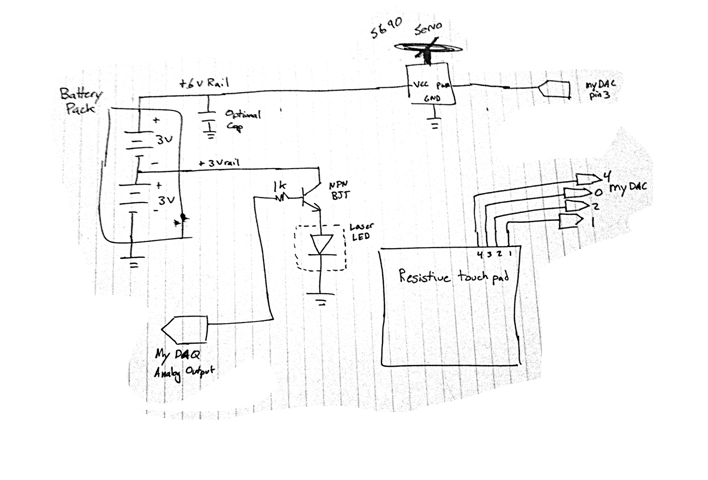 SG90 Servo
+6V Rail
Battery
Pack
VCC PWM
GND
myDAC
pin 3
Optional
Cap
+
3V
-
+3V rail
+
3V
-
1k
NPN
BJT
Laser
LED
4
0
myDAC
2
1
4 3 2 1
Resistive touch pad
My DAQ
Analog Output